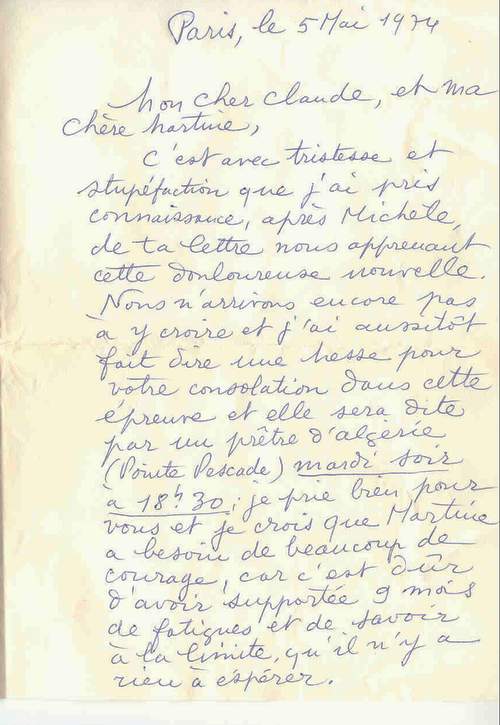 Paris, le 5 Mai 1974
Mon cher Claude, et ma
chère Martine,
C'est avec tristesse et
stupéfaction que j'ai pris
connaissance, après Michèle,
de ta lettre nous apprenant
cette donloureuse nouvelle.
Nous n'arrivons encore pas
à y croire et j'ai aussitôt
fait dire une Messe pour
votre consolation dans cette
épreuve et elle sera dite
par un prêtre d'algérie
(Pointe Pescade) mardi soir
à 18h30; je prie bien pour
vous et je crois que Martine
a besoin de beaucoup de
courage, car c'est dûr
d'avoir supportée 9 mois
de fatigues et de savoir
à la limite, qu'il n'y a
rien à espérer.